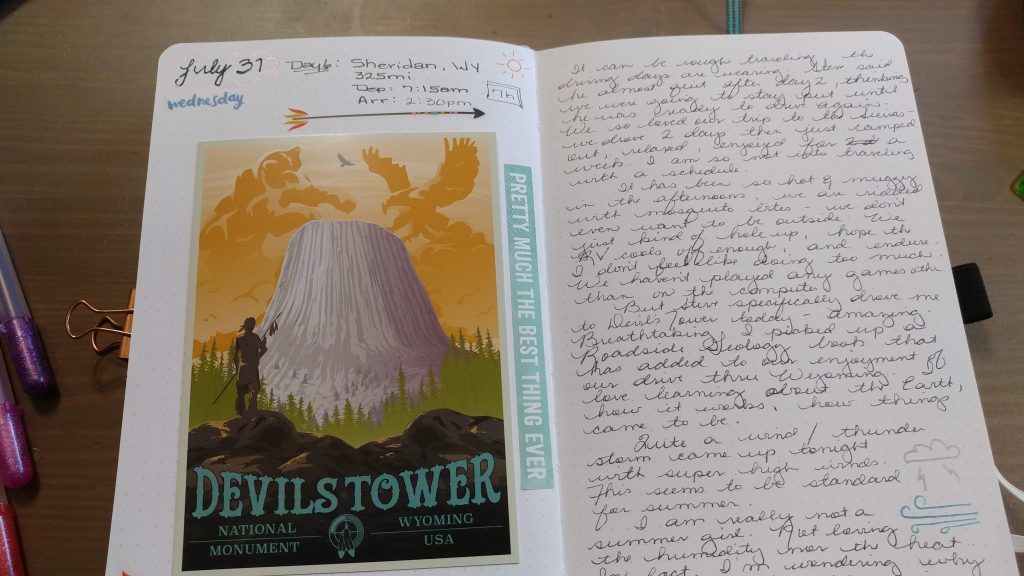 July 31
Wednesday
Day 6: Sheridan, WY
325mi
Dep: 7:15am
Arr: 2:30pm
7h
PRETTY MUCH THE BEST THING EVER
DEVILS TOWER
NATIONAL MONUMENT
WYOMING USA
It can be rough traveling the
driving days are wearing. Steve said
he almost quit after day 2, thinking
we were going to stay put until
he was ready to drive again.
We so loved our trip to the Sierras
we drove 2 days then just camped
out, relaxed, enjoyed for a
week. I am so not into traveling
with a schedule.
It has been so hot & muggy
in the afternoons, we are riddled
with mosquito bites - we don't
even want to be outside. We
just kind of hole up, hope the
RV cools off enough, and endure.
I don't feel like doing too much.
We haven't played any games othe
than on the computer
But Steve specifically drove me
to Devils Tower today - amazing.
Breathtaking, I picked up a
Roadside Geology book that
has added to our enjoyment of
our drive thru Wyoming. I
love learning about the Earth,
how it works, how things
came to be.
Quite a wind / thunder
storm came up tonight
with super high winds.
This seems to be standard
for summer.
I am really not a
summer girl. Not loving
the humidity nor the heat
In fact, I'm wondering why